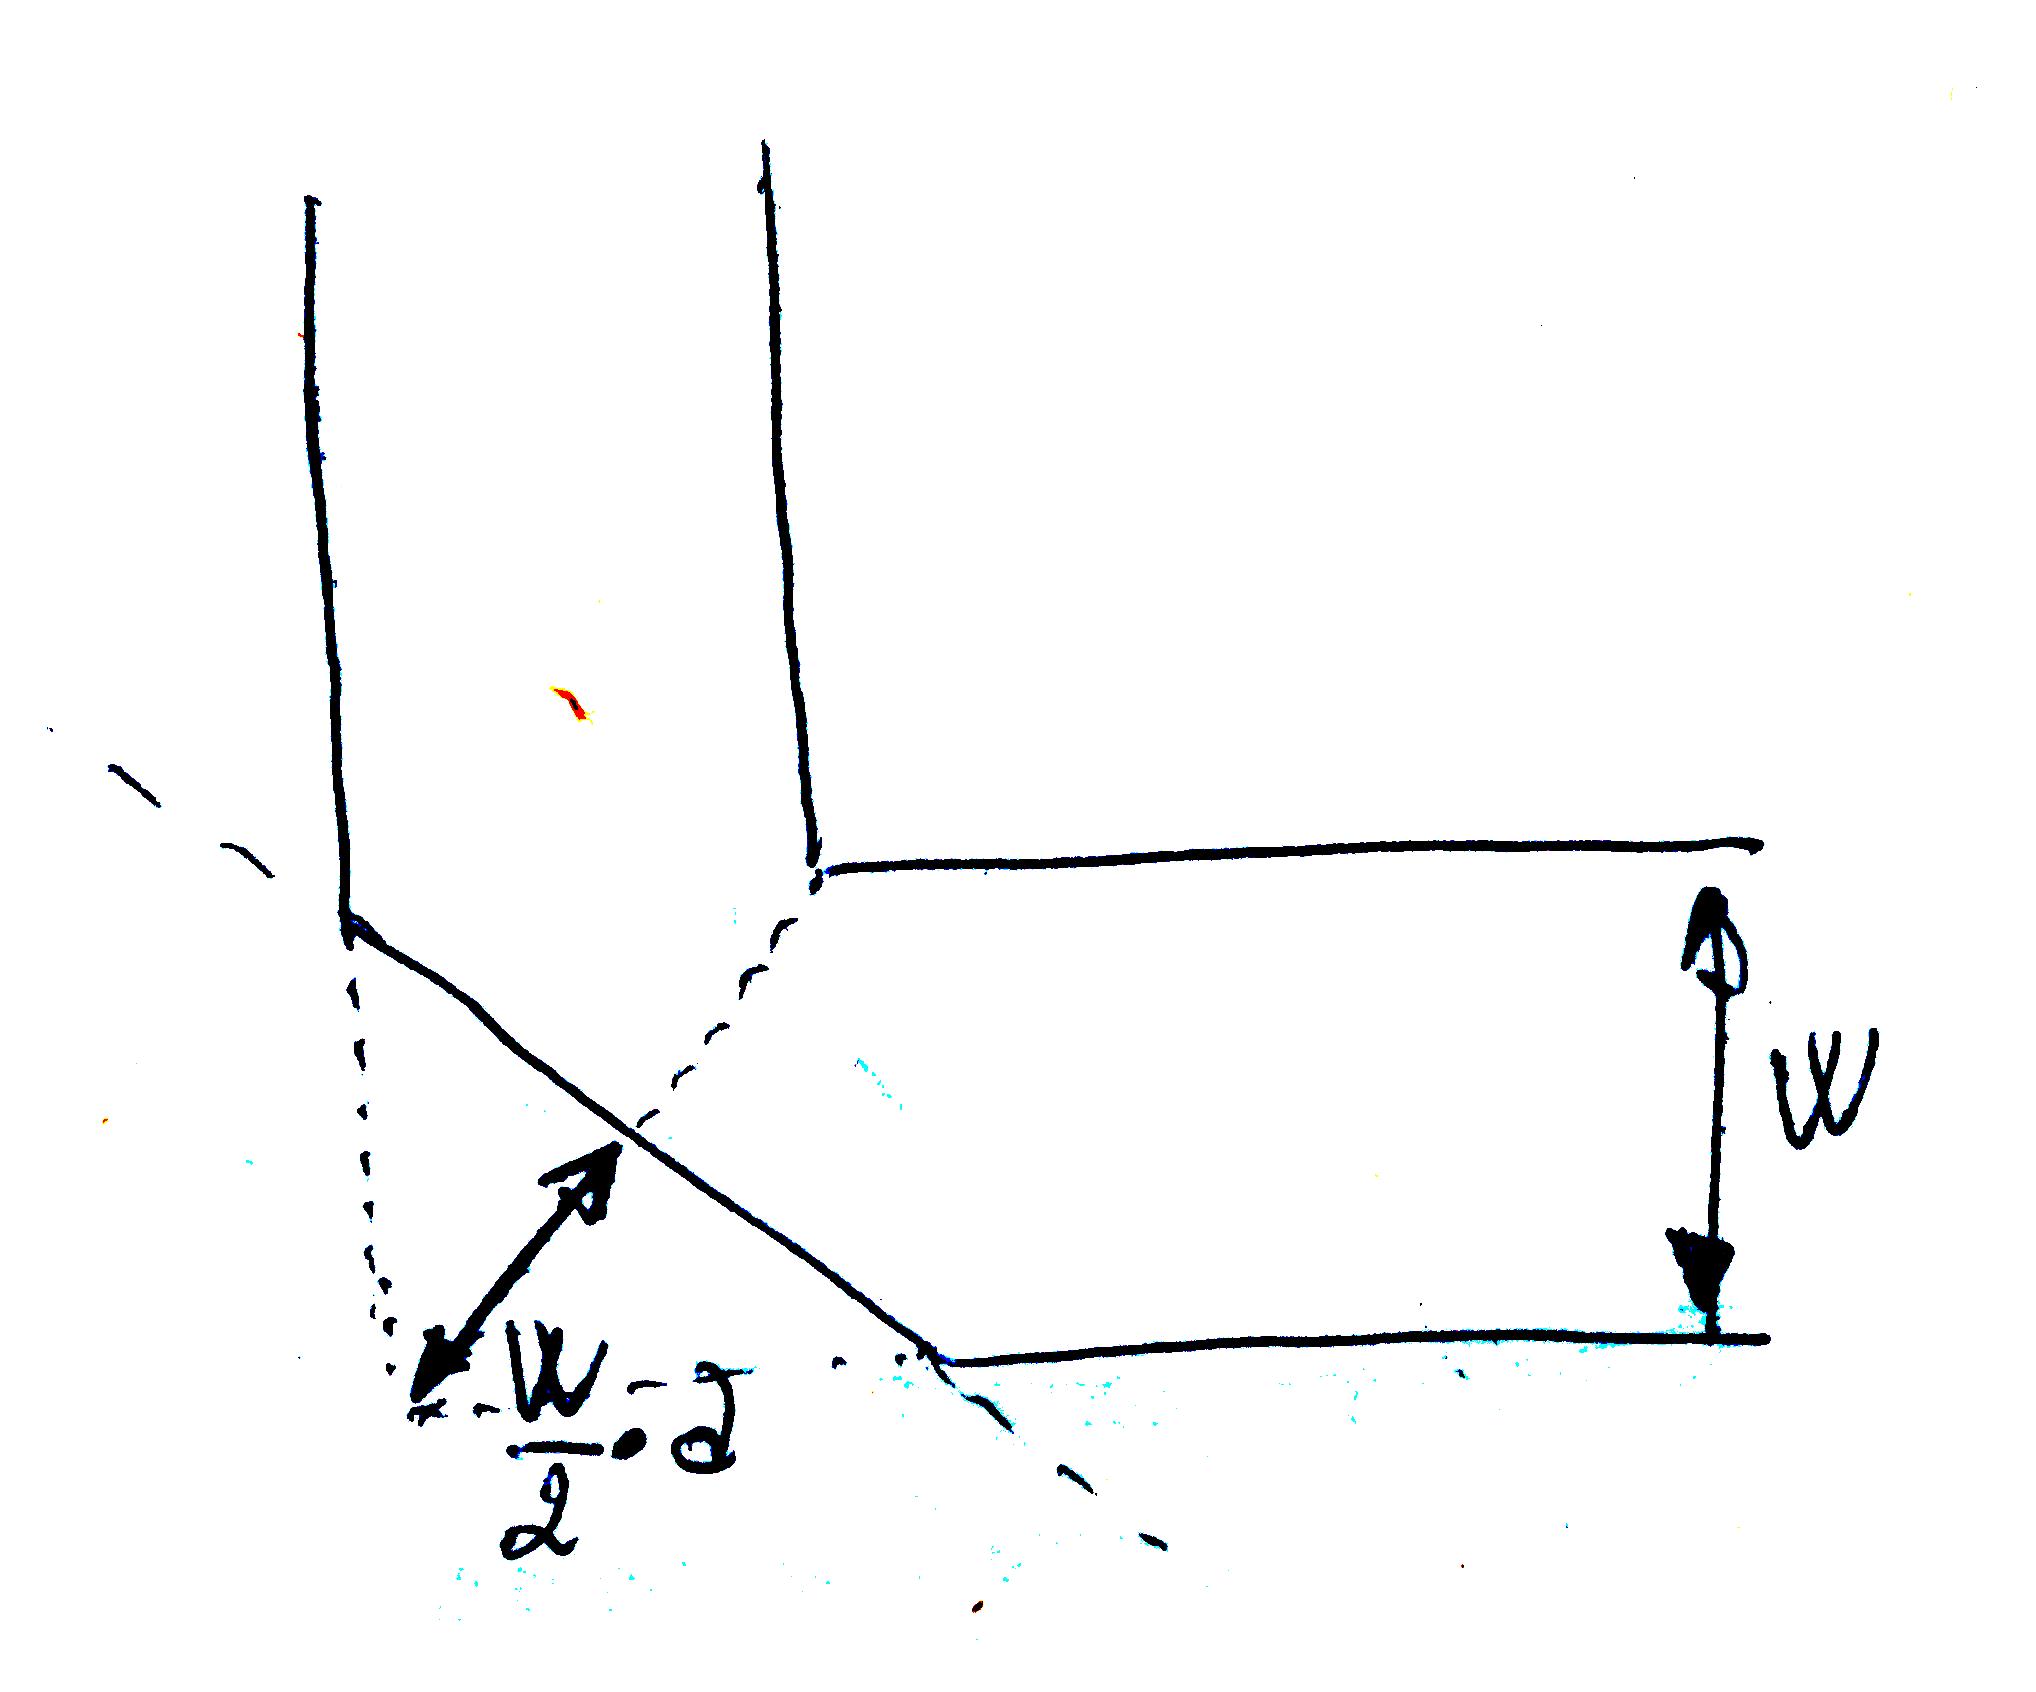 W
W
2 •